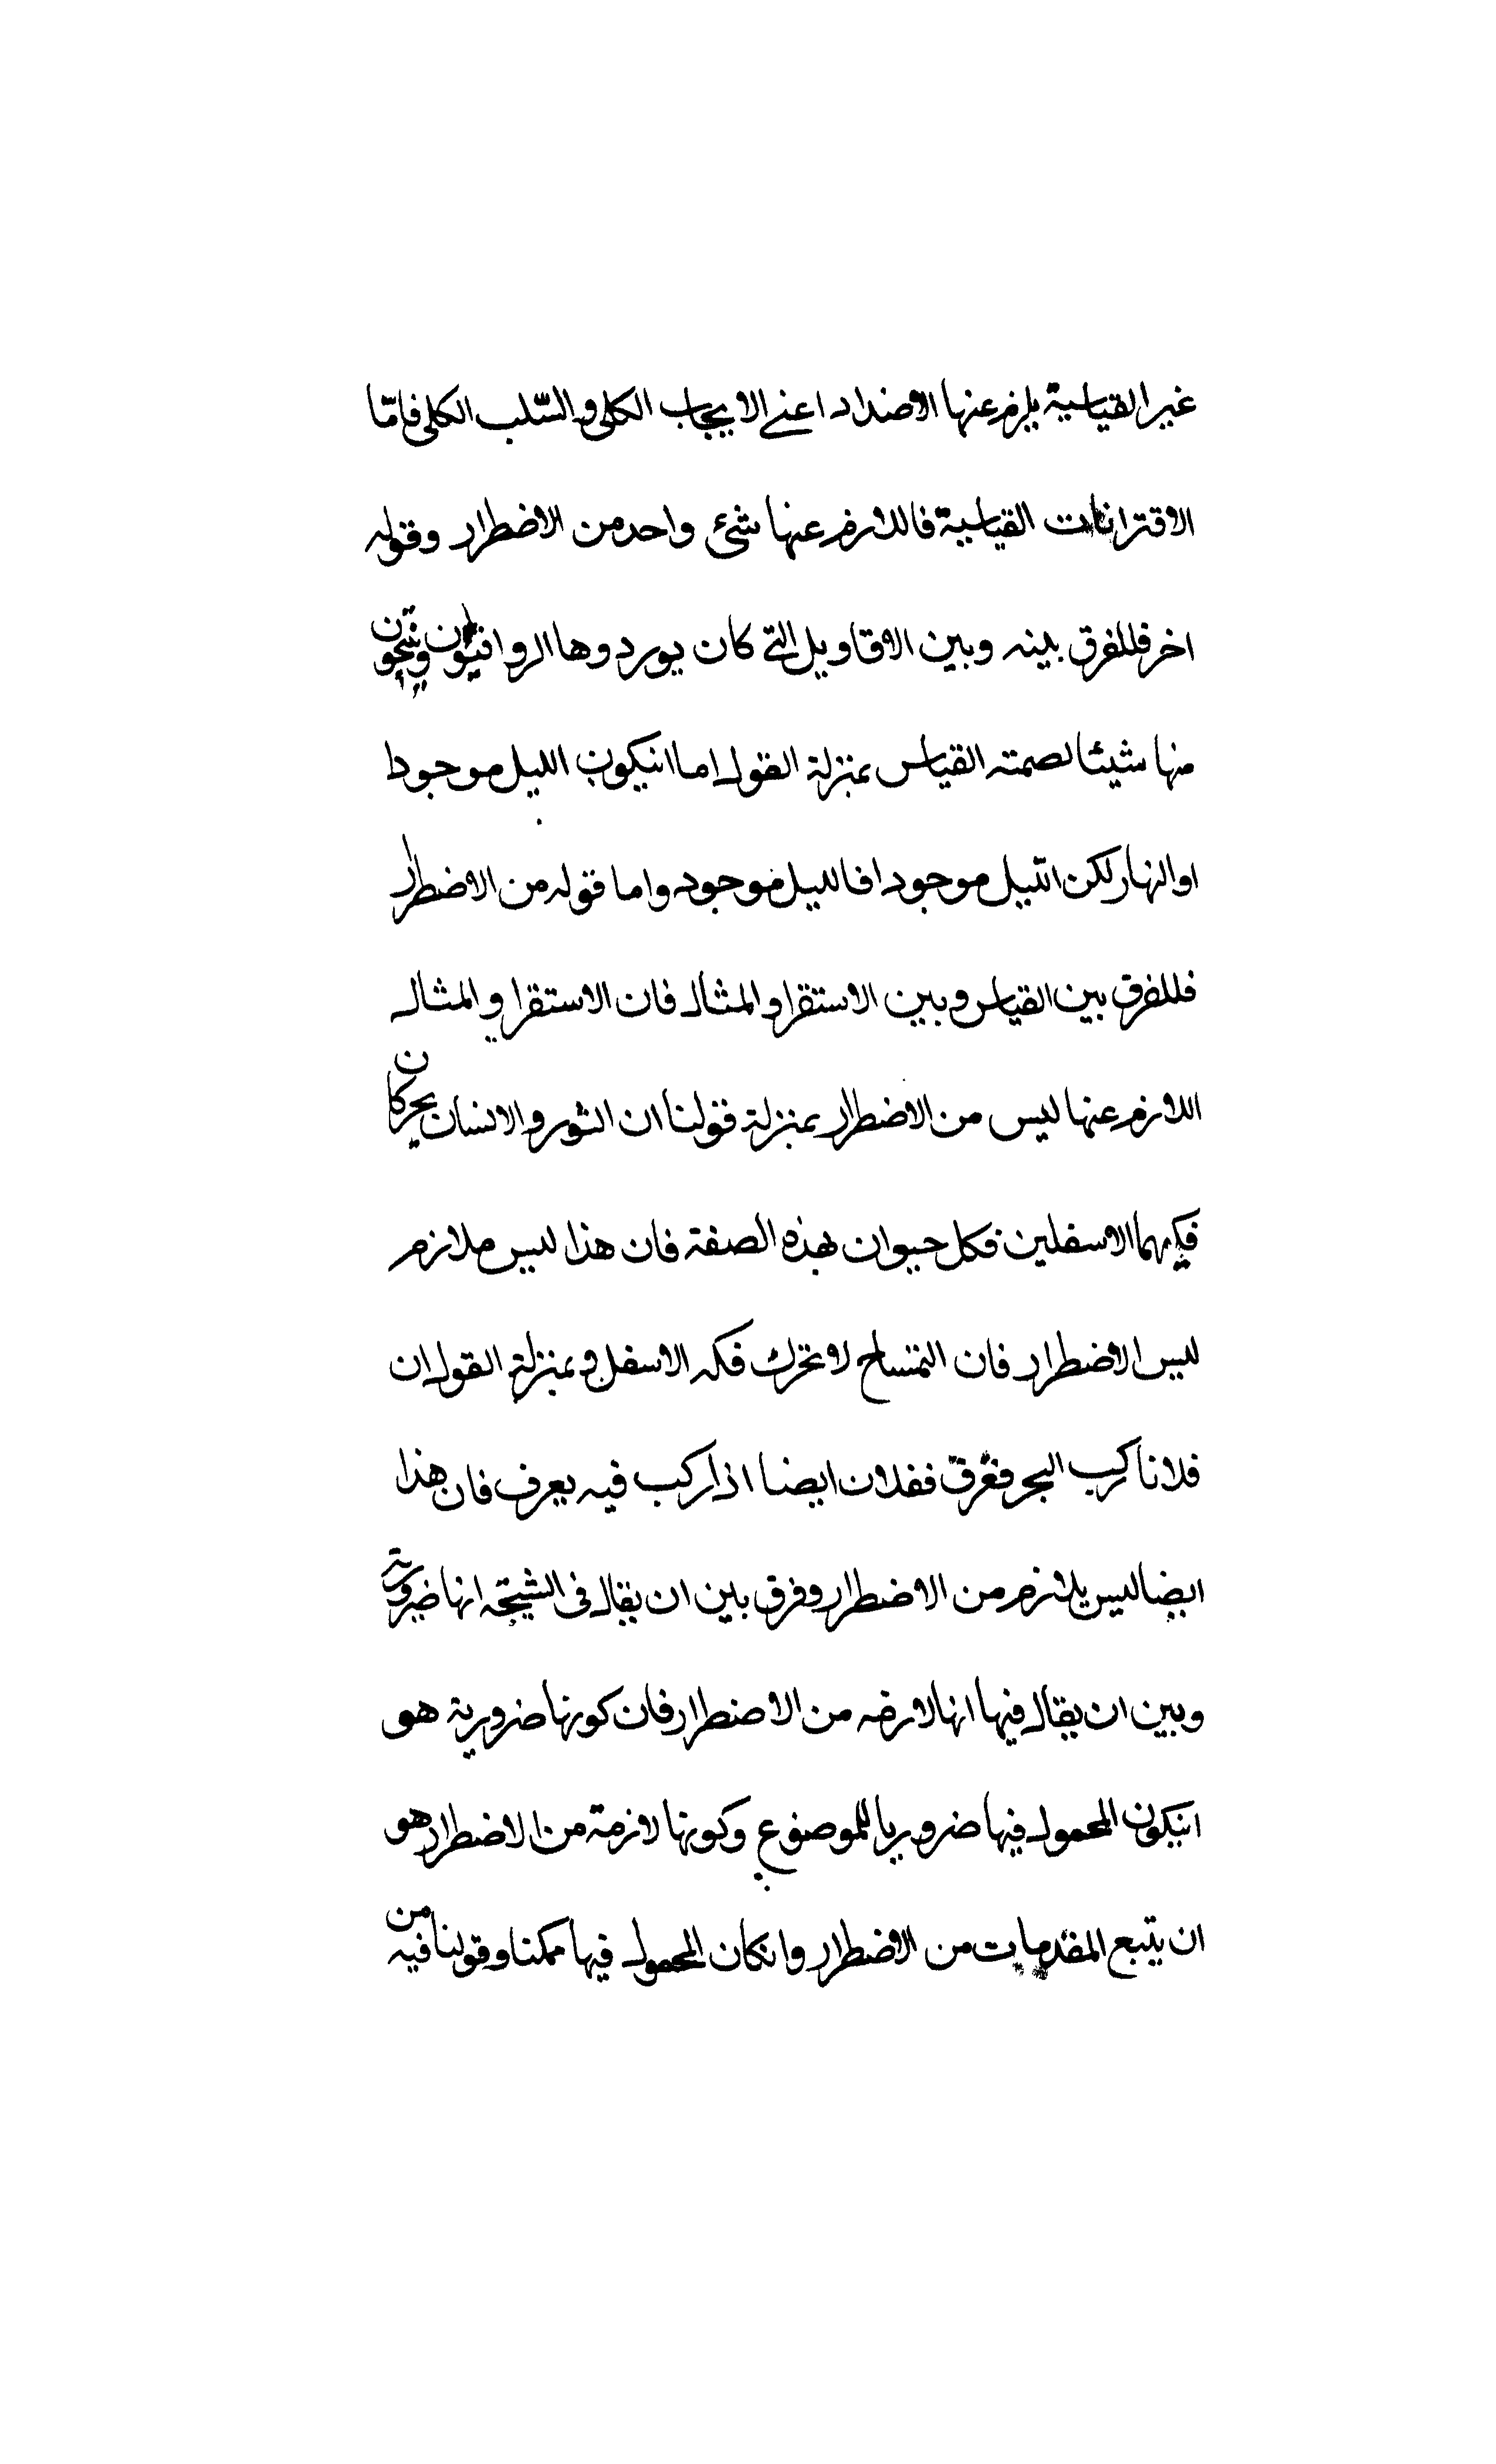 غير القياسية يلزم عنها الاضداد اعنے الايجاب الكلى والسّلب الكلى فامّا
الاقترانات القياسية فاللازم عنها شئ واحد من الاضطرار وقوله
اخر فللفرق بينه وبين الاقاويل التے كان يوردوها الرواقيون وينتجون
منها شيئا لصمته القياس بمنزلة القول اما انيكون الليل موجودا
او النهار لكن الليل موجودا فالليل موجود واما قوله من الاضطرار
فللفرق بين القياس وبين الاستقرا والمثال فان الاستقرا والمثال
اللازم عنها ليس من الاضطرار بمنزلة قولنا ان الثور والانسان يحركان
فكيهما الاسفلين فكل حيوان بهذه الصفة فان هذا ليس ملازم
ليس الاضطرار فان التمتساح لا تحرك فكه الاسفل وبمنزلة القول ان
فلانا ركب البحر فغرق ففلان ايضا اذا ركب فيه يعرف فان هذا
ايضا ليس يلازم من الاضطرار وفرق بين ان يقال فى النتيجة انها ضرورية
وبين ان يقال فيها انها لازمه من الاضطرار فان كونها ضرورية هو
انيكون المحمول فيها ضروريا للموضوع وكونها لازمة من الاضطرار هو
ان يتبع المقدمات من الاضطرار وانكان المحمول فيها ممكنا وقولنا فيه من